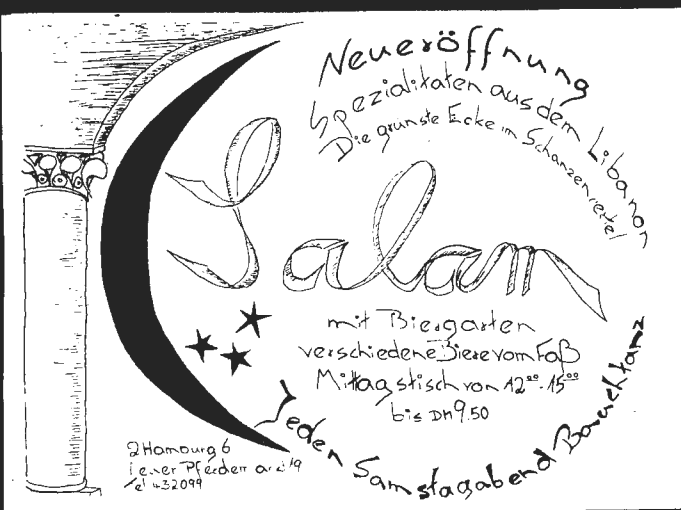 Neueröffnung
Spezialitäten aus dem Libanon
Die grünste Ecke im Schanzenviertel
Salam
mit Biergarten
verschiedene Biere vom Faß
Mittagstisch von 12⁰⁰-15⁰⁰
bis DM 9.50
Jeden Samstagabend Bauchtanz
2 Hamburg 6
Pferdem
Tel 432099